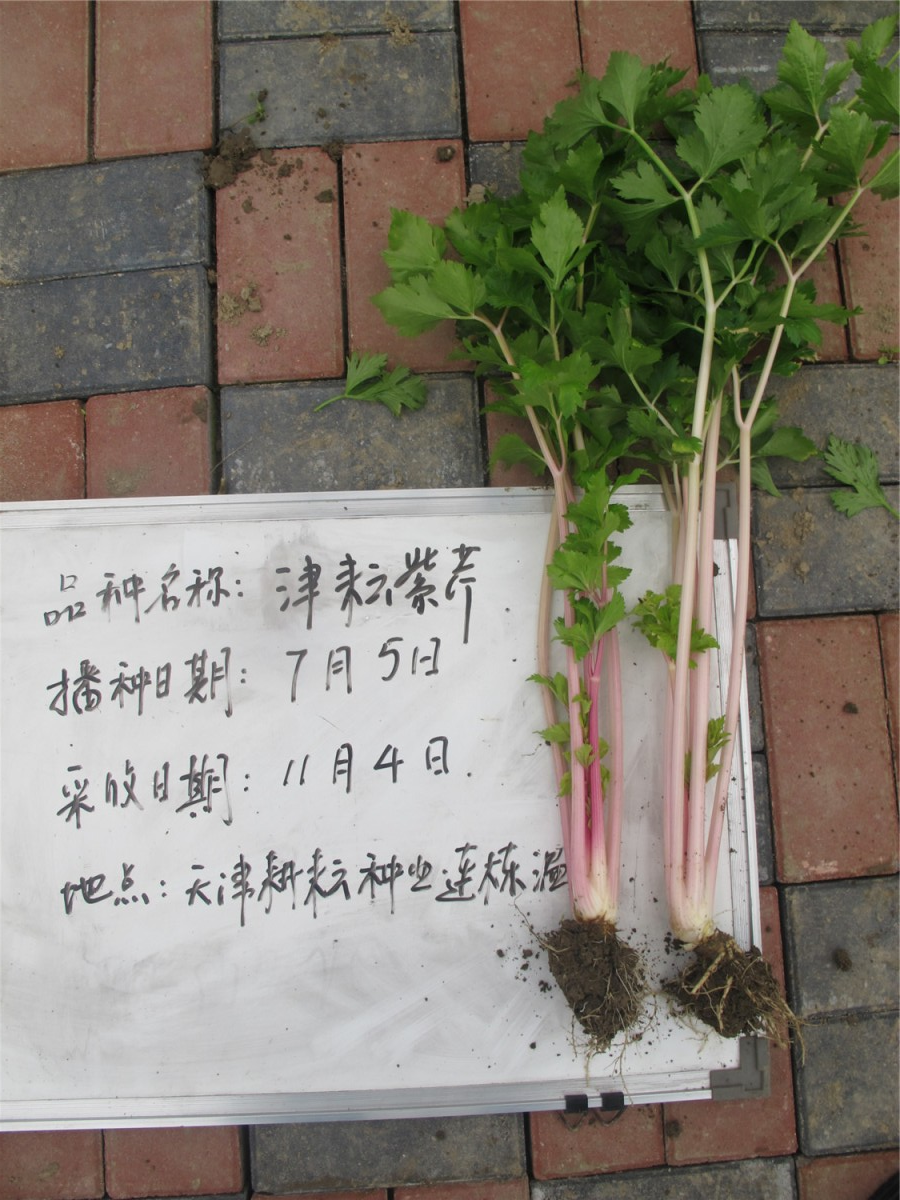 品种名称：津耘紫芹
播种日期：7月5日
采收日期：11月4日.
地点：天津耕耘种业连栋温